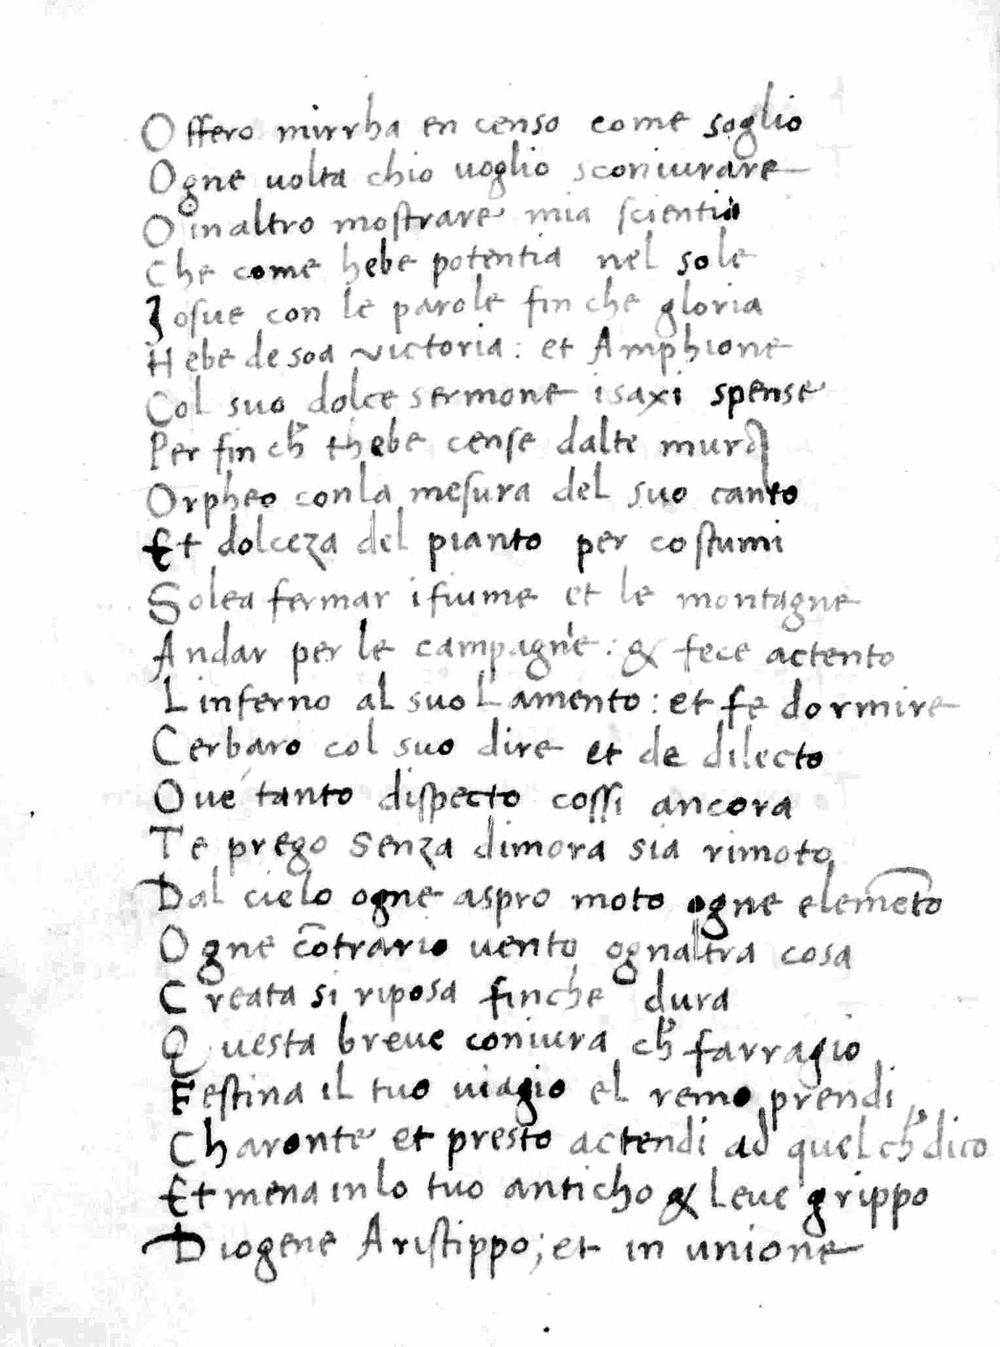 Offero mirrha en censo come soglio
Ogne uolta chio uoglio sconiurare
O in altro mostrare mia scientia
Che come hebe potentia nel sole
Iosue con le parole fin che gloria
Hebe de soa victoria: et Amphione
Col suo dolce sermone i saxi spense
Per fin ch̃ thebe cense dalte mura
Orpheo con la mesura del suo canto
Et dolceza del pianto per costumi
Solea fermar i fiume et le montagne
Andar per le campagne: & fece actento
Linferno al suo Lamento: et fe dormire
Cerbaro col suo dire et de dilecto
Oue tanto dispecto cossi ancora
Te prego senza dimora sia rimoto
Dal cielo ogne aspro moto ogne elemẽto
Ogne cõtrario uento ognaltra cosa
Creata si riposa finche dura
Questa breue coniura ch̃ farragio
Festina il tuo uiagio el remo prendi
Charonte et presto actendi ad quel ch̃ dico
Et mena in lo tuo anticho & leue grippo
Diogene Aristippo; et in unione